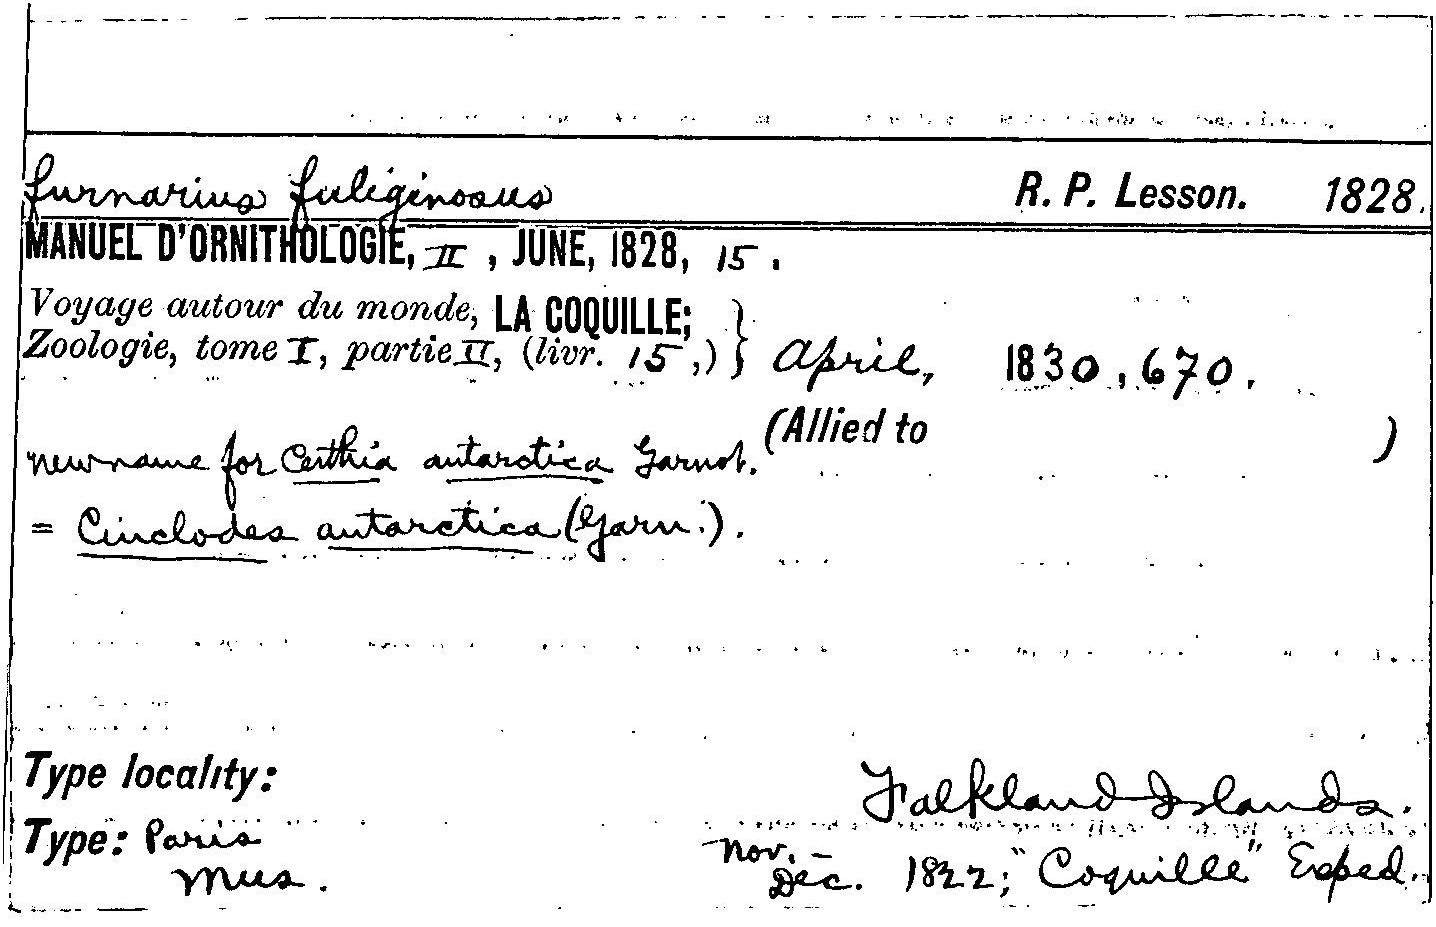 furnarius fuliginosus R. P. Lesson. 1828.
MANUEL D'ORNITHOLOGIE, II, JUNE, 1828, 15.
Voyage autour du monde, LA COQUILLE;
Zoologie, tome I, partie II, (livr. 15,) } April, 1830, 670.
(Allied to )
new name for Certhia antarctica Garnot.
= Cinclodes antarctica (Garn.).
Type locality: Falkland Islands.
Type: Paris Nov. –
Mus. Dec. 1822; "Coquille" Exped.